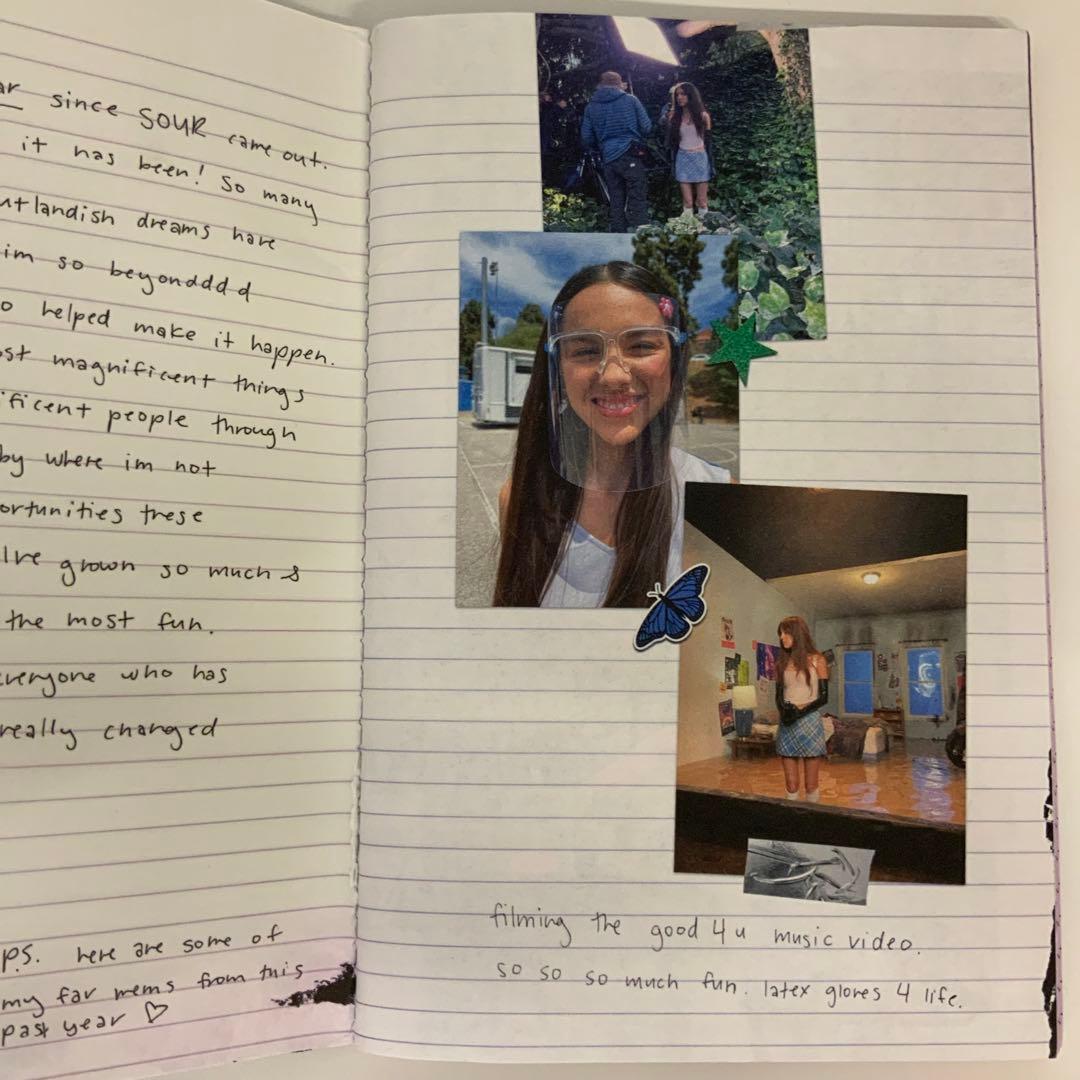 ar since SOUR came out.
it has been! so many
utlandish dreams have
im so beyonddd d
o helped make it happen.
ost magnificent things
ificent people through
by where im not
ortunities these
Ive grown so much &
the most fun.
everyone who has
really changed
P.S. here are some of
my fav mems from this
past year ♡
filming the good 4 u music video.
so so so much fun. latex gloves 4 life.